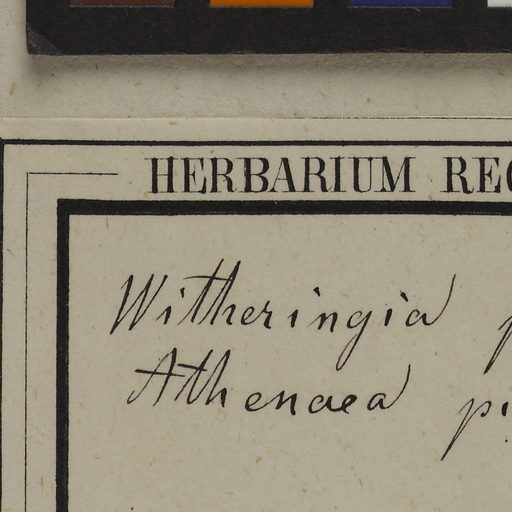 HERBARIUM REG
Witheringia p
Athenaea pi